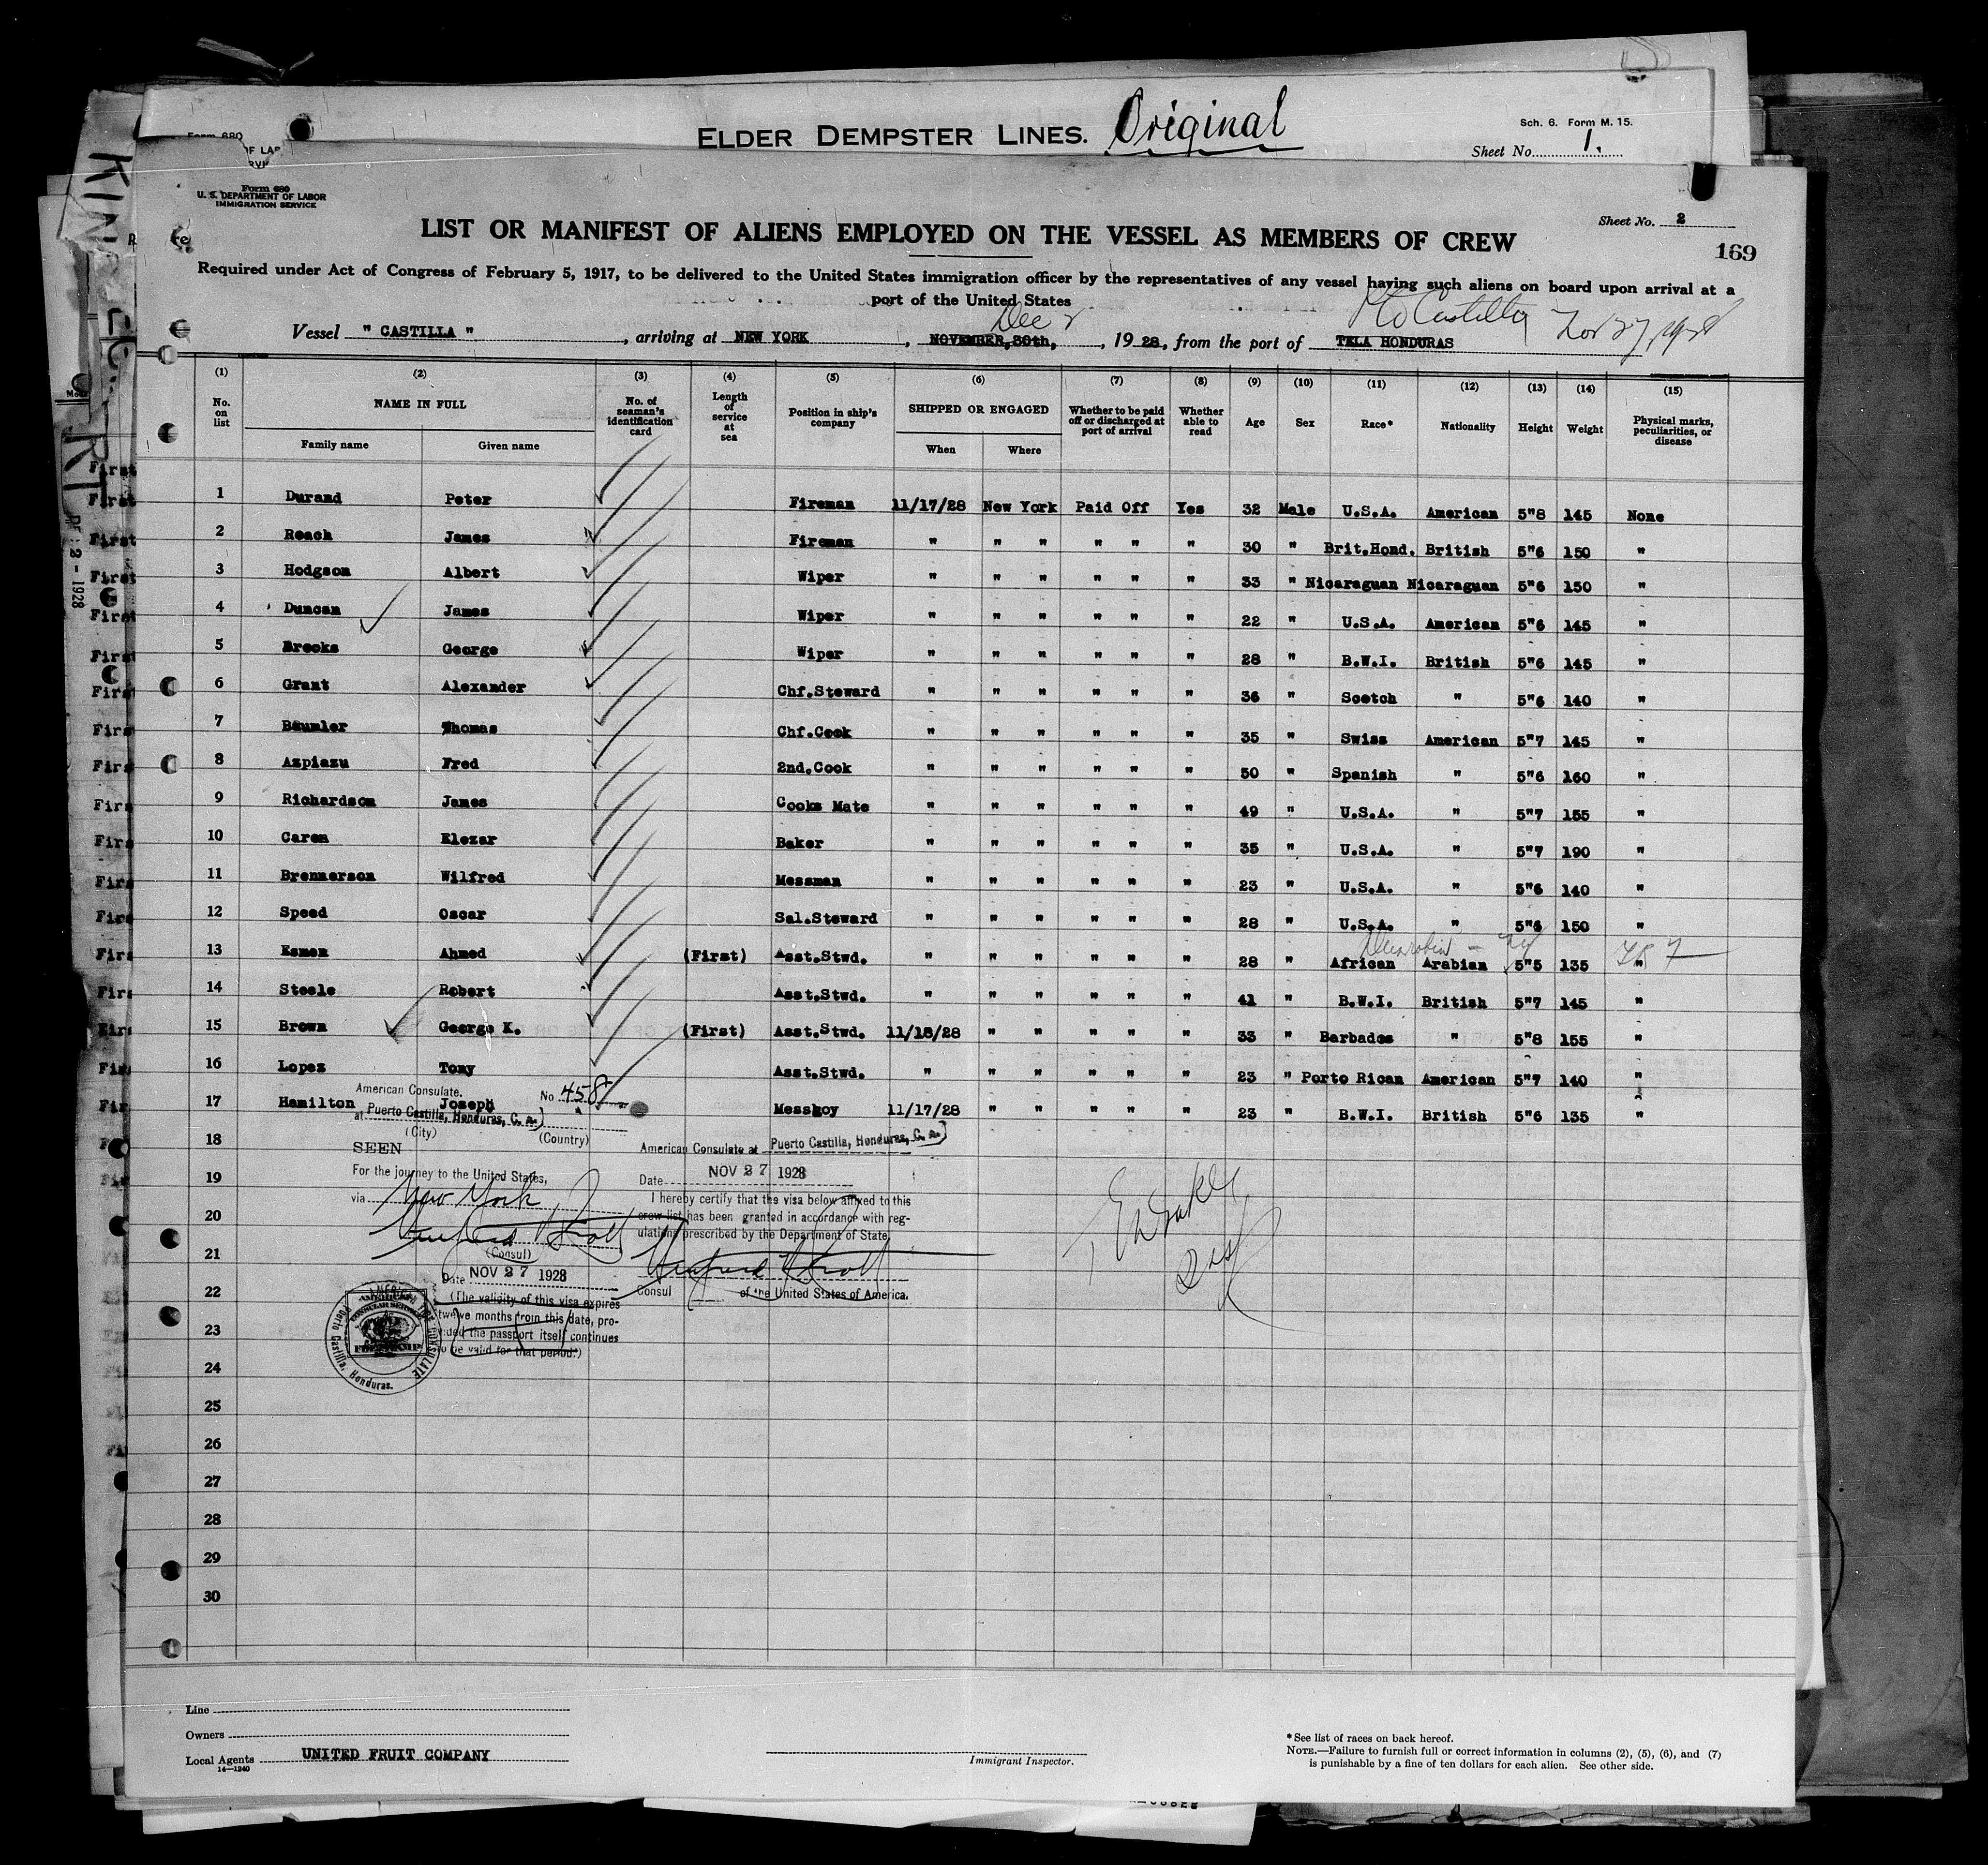 ELDER DEMPSTER LINES. Original
Sch. 6. Form M. 15.
Sheet No. 1.
Form 680
U. S. DEPARTMENT OF LABOR
IMMIGRATION SERVICE
Sheet No. 2
LIST OR MANIFEST OF ALIENS EMPLOYED ON THE VESSEL AS MEMBERS OF CREW
169
Required under Act of Congress of February 5, 1917, to be delivered to the United States immigration officer by the representatives of any vessel having such aliens on board upon arrival at a
port of the United States
Dec 2 Pto Castilla Nov 27, 1928
Vessel " CASTILLA ", arriving at NEW YORK, NOVEMBER,30th, 1928, from the port of TELA HONDURAS
(1) (2) (3) (4) (5) (6) (7) (8) (9) (10) (11) (12) (13) (14) (15)
No. on list NAME IN FULL No. of seaman's identification card Length of service at sea Position in ship's company SHIPPED OR ENGAGED Whether to be paid off or discharged at port of arrival Whether able to read Age Sex Race* Nationality Height Weight Physical marks, peculiarities, or disease
Family name Given name When Where
1 Durand Peter Fireman 11/17/28 New York Paid Off Yes 32 Male U.S.A. American 5"8 145 None
2 Reach James Fireman " " " " " " 30 " Brit.Hond. British 5"6 150 "
3 Hodgson Albert Wiper " " " " " " 33 " Nicaraguan Nicaraguan 5"6 150 "
4 Duncan James Wiper " " " " " " 22 " U.S.A. American 5"6 145 "
5 Brooks George Wiper " " " " " " 28 " B.W.I. British 5"6 145 "
6 Grant Alexander Chf.Steward " " " " " " 36 " Scotch " 5"6 140 "
7 Baumler Thomas Chf.Cook " " " " " " 35 " Swiss American 5"7 145 "
8 Azpiazu Fred 2nd.Cook " " " " " " 50 " Spanish " 5"6 160 "
9 Richardson James Cooks Mate " " " " " " 49 " U.S.A. " 5"7 155 "
10 Caren Elezar Baker " " " " " " 35 " U.S.A. " 5"7 190 "
11 Brennerson Wilfred Messman " " " " " " 23 " U.S.A. " 5"6 140 "
12 Speed Oscar Sal.Steward " " " " " " 28 " U.S.A. " 5"6 150 "
13 Esmen Ahmed (First) Asst.Stwd. " " " " " " 28 " African Arabian 5"5 135 "
14 Steele Robert Asst.Stwd. " " " " " " 41 " B.W.I. British 5"7 145 "
15 Brown George K. (First) Asst.Stwd. 11/18/28 " " " " " 33 " Barbados " 5"8 155 "
16 Lopez Tony Asst.Stwd. " " " " " " 23 " Porto Rican American 5"7 140 "
17 Hamilton Joseph Messboy 11/17/28 " " " " " 23 " B.W.I. British 5"6 135 "
18
19
20
21
22
23
24
25
26
27
28
29
30
American Consulate. No 458
at Puerto Castilla, Honduras, C. A.)
(City) (Country)
SEEN
For the journey to the United States,
via New York
(Consul)
Date NOV 27 1928
(The validity of this visa expires
twelve months from this date, pro-
vided the passport itself continues
to be valid for that period.)
American Consulate at Puerto Castilla, Honduras, C. A.)
Date NOV 27 1928
I hereby certify that the visa below affixed to this
crew list has been granted in accordance with reg-
ulations prescribed by the Department of State.
Consul of the United States of America.
Puerto Castilla, Honduras.
Line
Owners
Local Agents UNITED FRUIT COMPANY
14—1240
Immigrant Inspector.
*See list of races on back hereof.
NOTE.—Failure to furnish full or correct information in columns (2), (5), (6), and (7)
is punishable by a fine of ten dollars for each alien. See other side.